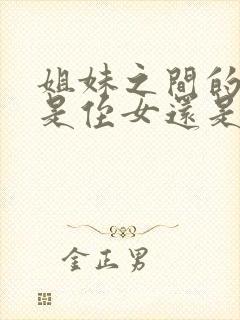 姐妹之間的
是侄女還是
金正男